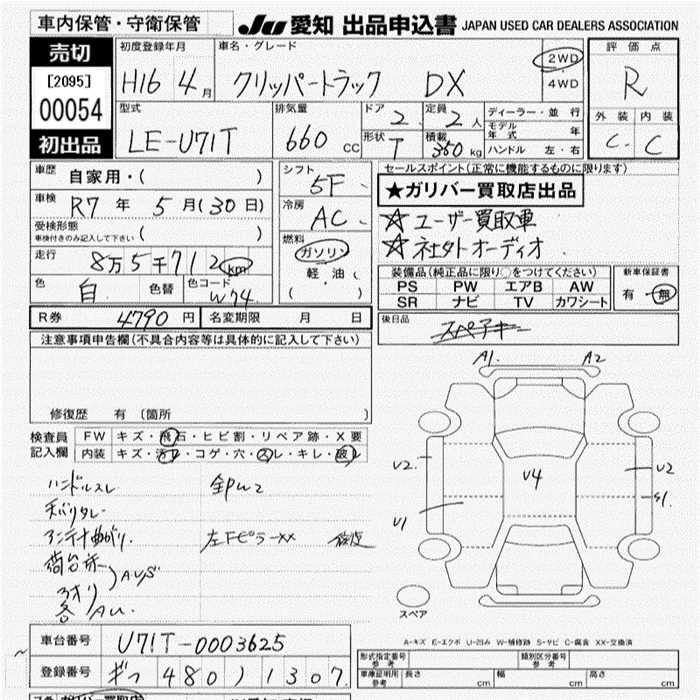 車内保管・守衛保管
JU 愛知 出品申込書 JAPAN USED CAR DEALERS ASSOCIATION
売切
[2095]
00054
初出品
初度登録年月 車名・グレード
H16 4月 クリッパートラック DX
2WD
4WD
評価点
R
外装 内装
C C
型式 排気量 ドア 定員
LE-U71T 660 cc 2 2人
形状 積載
T 350 kg
ディーラー・並行
モデル年式 年
ハンドル 左・右
車歴 自家用・( )
車検 R7年 5月(30日)
受検形態
車検付きのみ記入して下さい ( )
走行 8万5千712km
色 白 色替 色コード W74
シフト 5F
冷房 AC
燃料
ガソリン
軽油( )
セールスポイント(正常に機能するものに限ります)
★ガリバー買取店出品
☆ユーザー買取車
☆社外オーディオ
装備品(純正品に限り○をつけてください)
PS PW エアB AW
SR ナビ TV カワシート
新車保証書
有・無
R券 4790円 名変期限 月 日
後日品 スペアキー
注意事項申告欄(不具合内容等は具体的に記入して下さい)
修復歴 有 (箇所
検査員記入欄
FW キズ・飛石・ヒビ割・リペア跡・X要
内装 キズ・汚レ・コゲ・穴・スレ・キレ・破レ
ハンドルスレ 全PW2
アンテナ曲がり 左Fピラーxx 修復
荷台
3オリ
各 AU
A1 A2
U2 U4 U2
U1 S1
スペア
A-キズ E-エクボ U-凹み W-補修跡 S-サビ C-腐食 XX-交換済
車台番号 U71T-0003625
登録番号 ギフ 480 ) 1307
形式指定番号 参考 類別区分番号 参考
車庫証明用 参考 長さ cm 幅 cm 高さ cm